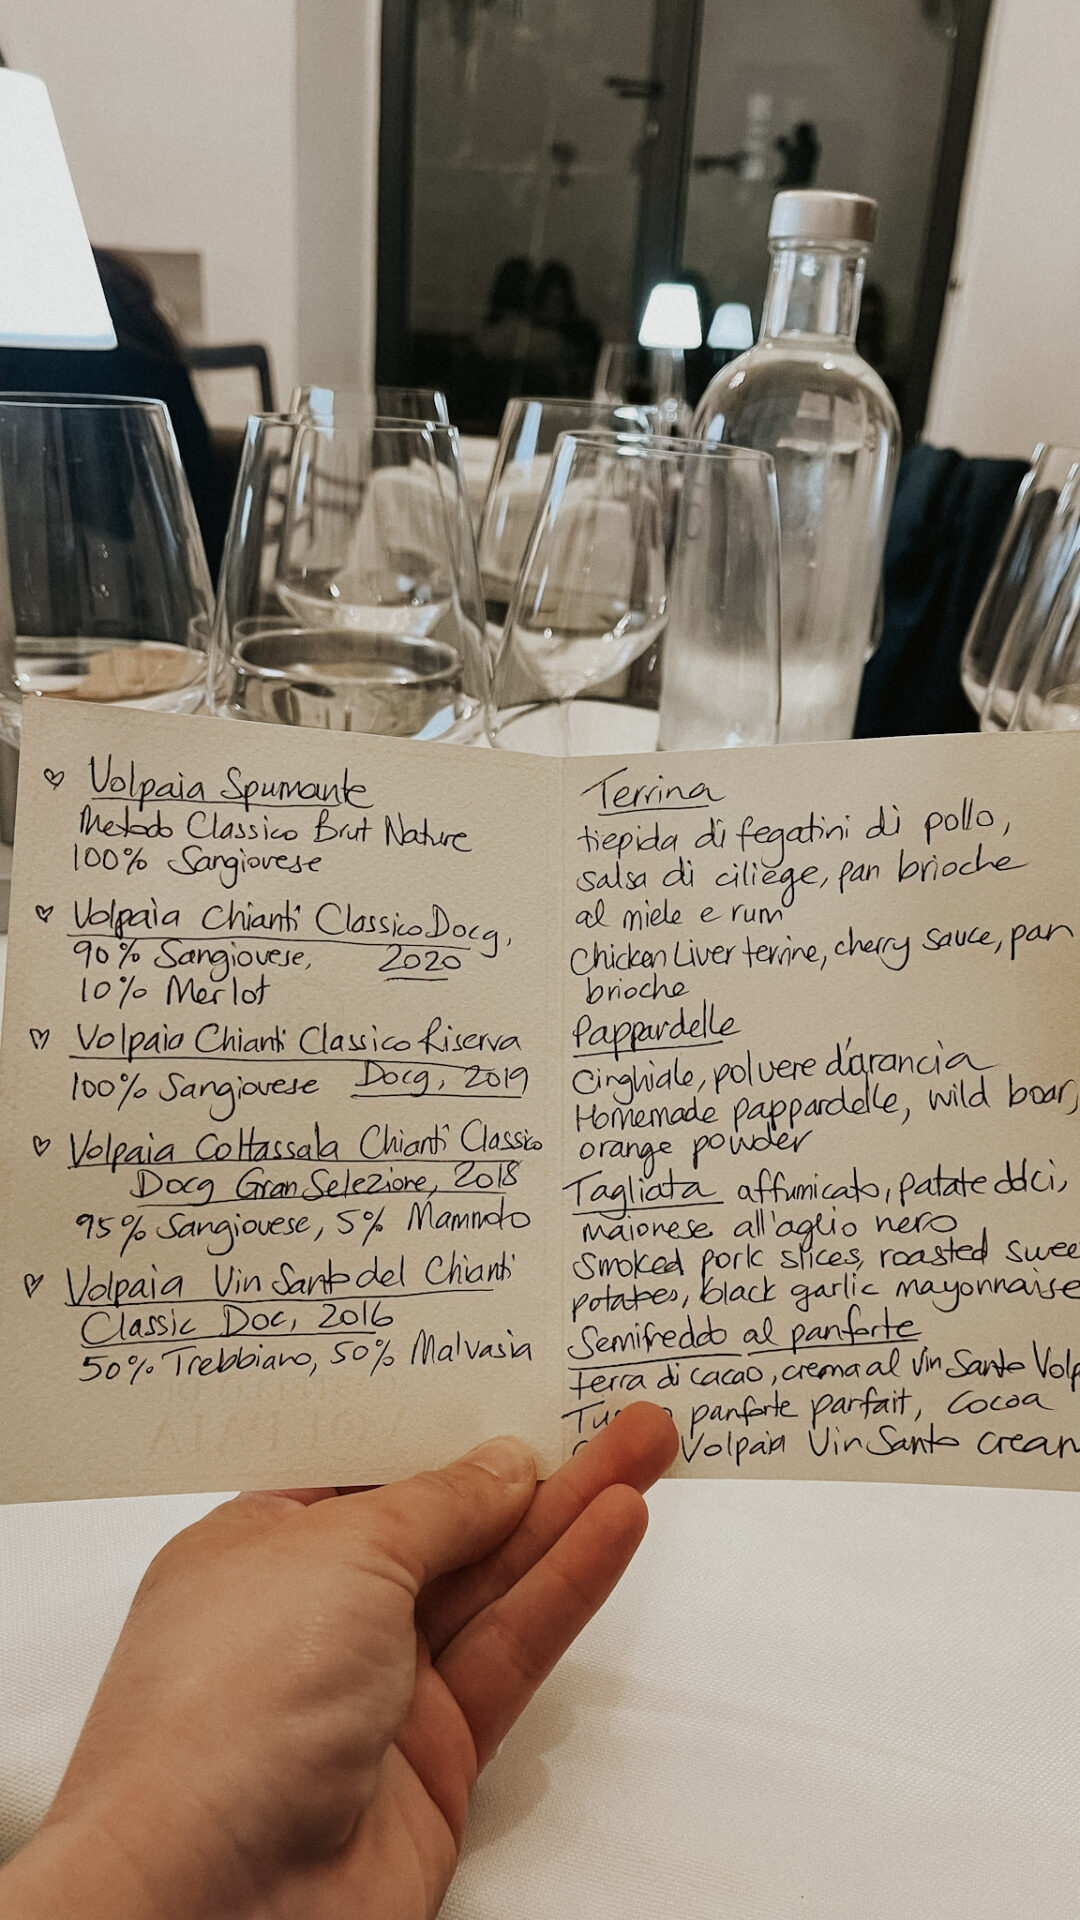 ♡ Volpaia Spumante
Metodo Classico Brut Nature
100% Sangiovese
♡ Volpaia Chianti Classico Docg,
90% Sangiovese, 2020
10% Merlot
♡ Volpaia Chianti Classico Riserva
100% Sangiovese Docg, 2019
♡ Volpaia Coltassala Chianti Classico
Docg Gran Selezione, 2018
95% Sangiovese, 5% Mammolo
♡ Volpaia Vin Santo del Chianti
Classic Doc, 2016
50% Trebbiano, 50% Malvasia
Terrina
tiepida di fegatini di pollo,
salsa di ciliege, pan brioche
al miele e rum
Chicken Liver terrine, cherry sauce, pan
brioche
Pappardelle
Cinghiale, polvere d'arancia
Homemade pappardelle, wild boar,
orange powder
Tagliata affumicato, patate dolci,
maionese all'aglio nero
Smoked pork slices, roasted swee
potatoes, black garlic mayonnaise
Semifreddo al panforte
terra di cacao, crema al Vin Santo Volp
Tu panforte parfait, cocoa
Volpaia Vin Santo crean